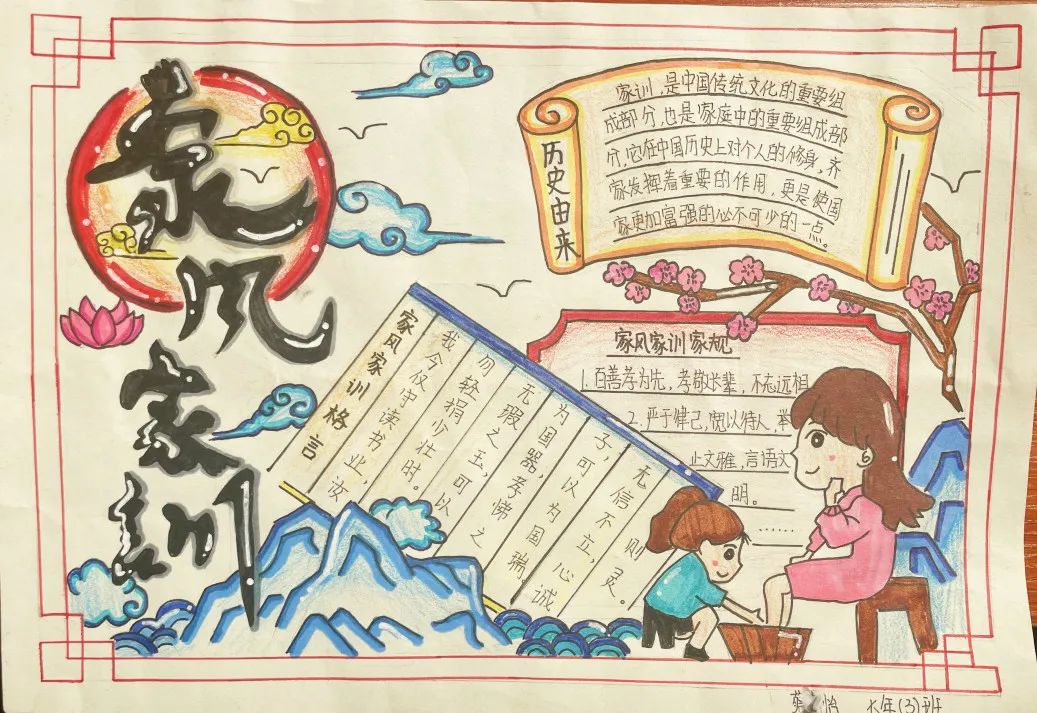 家风
家训
历史由来
家训，是中国传统文化的重要组
成部分，也是家庭中的重要组成部
分，它在中国历史上对个人的修身，齐
家发挥着重要的作用，更是使国
家更加富强的必不可少的一点。
家风家训格言
我今仅守读书业，汝
勿轻捐少壮时。
无瑕之玉，可以
为国器，孝悌之
子，可以为国瑞。
无信不立，心诚
则灵。
家风家训家规
1.百善孝为先，孝敬长辈，不忘远祖
2.严于律己，宽以待人，举
止文雅，言语文
明。
……
怡 六年(3)班